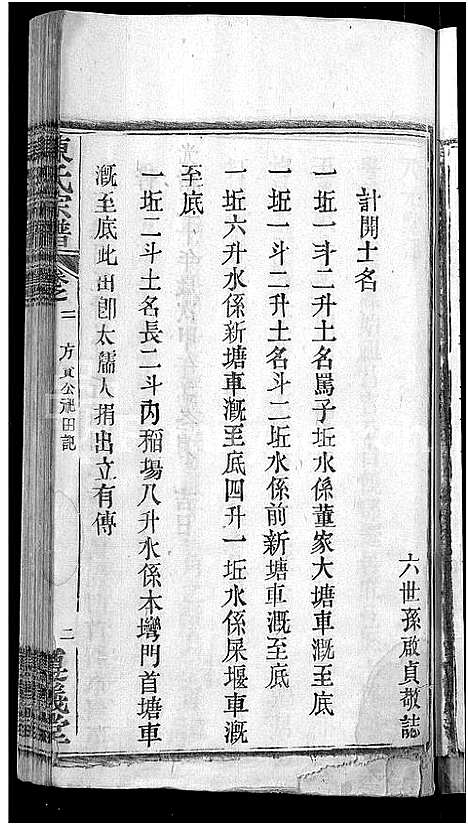 六世孫啟貞敬誌
計開士名
一坵一斗二升土名罵子坵水係董家大塘車溉至底
一坵一斗二升土名斗二坵水係前新塘車溉至底
一坵六升水係新塘車溉至底四升一坵水係屎堰車溉
至底
一坵二斗土名長二斗內稻場八升水係本塆門首塘車
溉至底此田卽太孺人捐出立有傳
陳氏宗譜
卷之二
方貢公祀田記
二
義堂